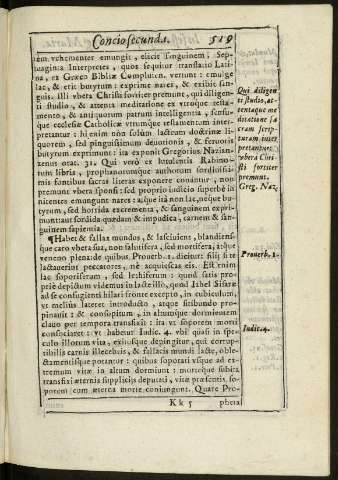 Concio secunda. 519
tim vehementer emungit, elicit sanguinem, Sep-
tuaginta Interpretes, quos sequitur translatio Lati-
na, ex Græco Bibliæ Compluten. vertunt: emulge
lac, & erit butyrum: exprime nares, & exibit san-
guis. Illi vbera Christi fortiter premunt, qui diligen-
ti studio, & attenta meditatione ex vtroque testa-
mento, & antiquorum patrum intelligentia, sensu-
que ecclesiæ Catholicæ vtrumque testamentum inter-
pretantur: hi enim non solùm lacteum doctrinæ li-
quorem, sed pinguissimum deuotionis, & feruoris
butyrum exprimunt: ita exponit Gregorius Nazian-
zenus orat. 31. Qui verò ex lutulentis Rabino-
tum libris, prophanorumque authorum sordiusiu-
mis fontibus sacras literas exponere conãtur, non
premunt vbera sponsi: sed proprio iudicio superbè in
nitentes emungunt nares: atque ita non lac, neque bu-
tyrum, sed horrida excrementa, & sanguinem expri-
munt: aut sordida quædam & impudica, carnem & san-
guinem sapientia.
¶Habet & fallax mundus, & lasciuiens, blandiens-
que caro vbera sua, non salutifera, sed mortifera, atque
veneno plena: de quibus Prouerb. 1. dicitur: fili si te
lactauerint peccatores, nè acquiescas eis. Est enim
lac soporiferum, sed lethiferum: quod satis pro-
priè depictum videmus in lacte illo, quod Iahel Sisaræ
ad se confugienti hilari fronte excepto, in cubiculum,
vt melius lateret introducto, atque sitibundo pro-
pinauit: & consopitum, in altumque dormientem
clauo per tempora transfixit: ita vt soporem morti
consociaret: vt habetur Iudic. 4. vbi quasi in spe-
culo illorum vita, exitusque depingitur, qui corrup-
tibilis carnis illecebris, & fallacis mundi lacte, oble-
ctamentisque potantur: quibus soporati vsque ad ex-
tremum vitæ in altum dormiunt: morteque subita
transfixi æternis suppliciis deputati, vitæ præsentis so-
porem cum æterna morte coniungunt. Quare Pro-
Kk 5 pheta
Qui diligen
te studio, at-
tentaque me
ditatione sa
cram Scrip-
turam inter
pretantur,
vbera Chri-
sti fortiter
premunt.
Greg. Naz.
Prouerb. 1.
Iudic. 4.